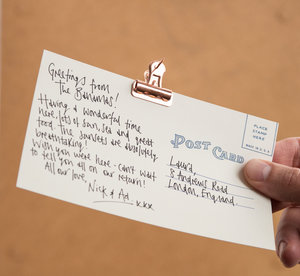 Greetings from
The Bahamas!
Having a wonderful time
here. lots of sun, sea and great
food. The sunsets are absolutely
breathtaking!
Wish you were here - can't wait
to tell you all on our return!
All our love,
Nick & Ad
xxx
POST CARD
PLACE
STAMP
HERE
MADE IN U.S.A
Laura,
8 Andrews Road
London, England